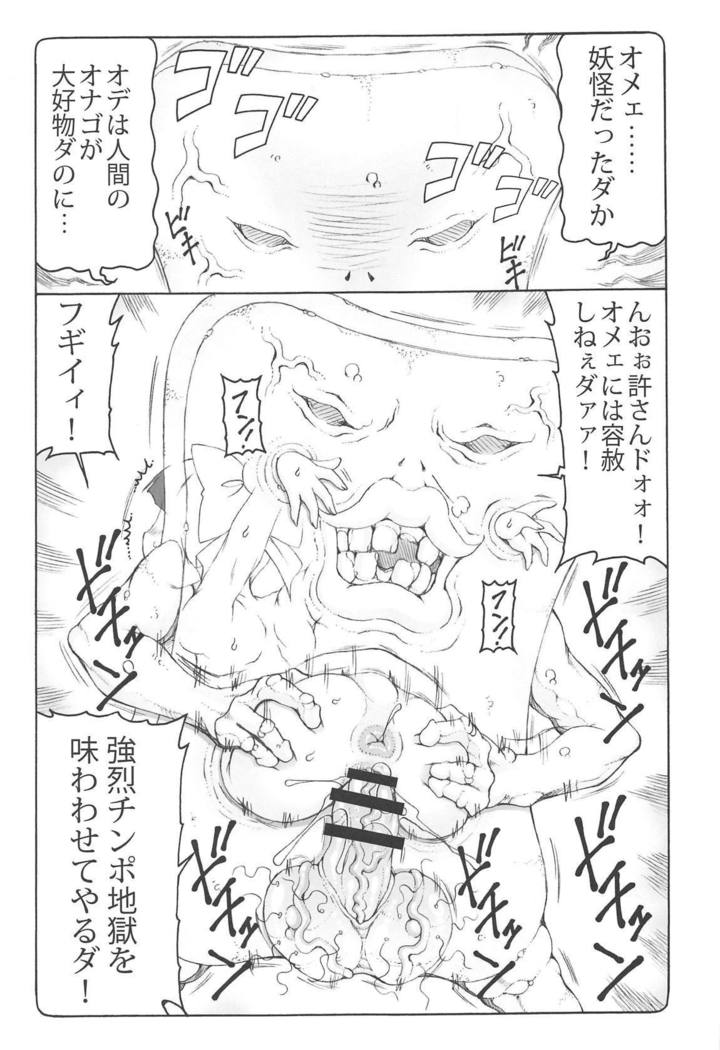 オメェ……
妖怪だったダか
ゴゴ
ゴゴ
オデは人間の
オナゴが
大好物ダのに…
ビキ
ビキ
んおぉ許さんドォォ！
オメェには容赦
しねぇダァァ！
フギイィ！
フン!!
フン!!
ドチュッン
ドチュッン
強烈チンポ地獄を
味わわせてやるダ！
ドチュッン
ドチュッン
ドチュッン